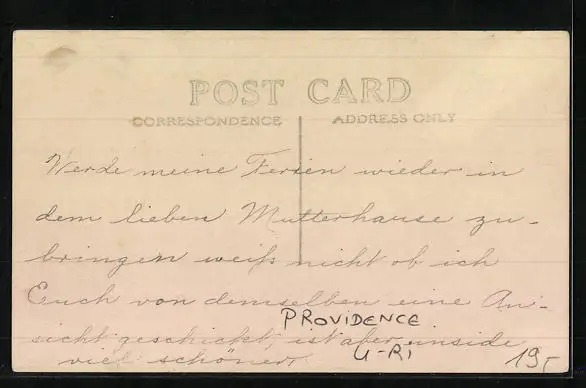 POST CARD
CORRESPONDENCE ADDRESS ONLY
Werde meine Ferien wieder in
dem lieben Mutterhause zu-
bringen weiß nicht ob ich
Euch von demselben eine An-
sicht geschickt, ist aber inside
viel schöner.
PROVIDENCE
U-RI
19,-